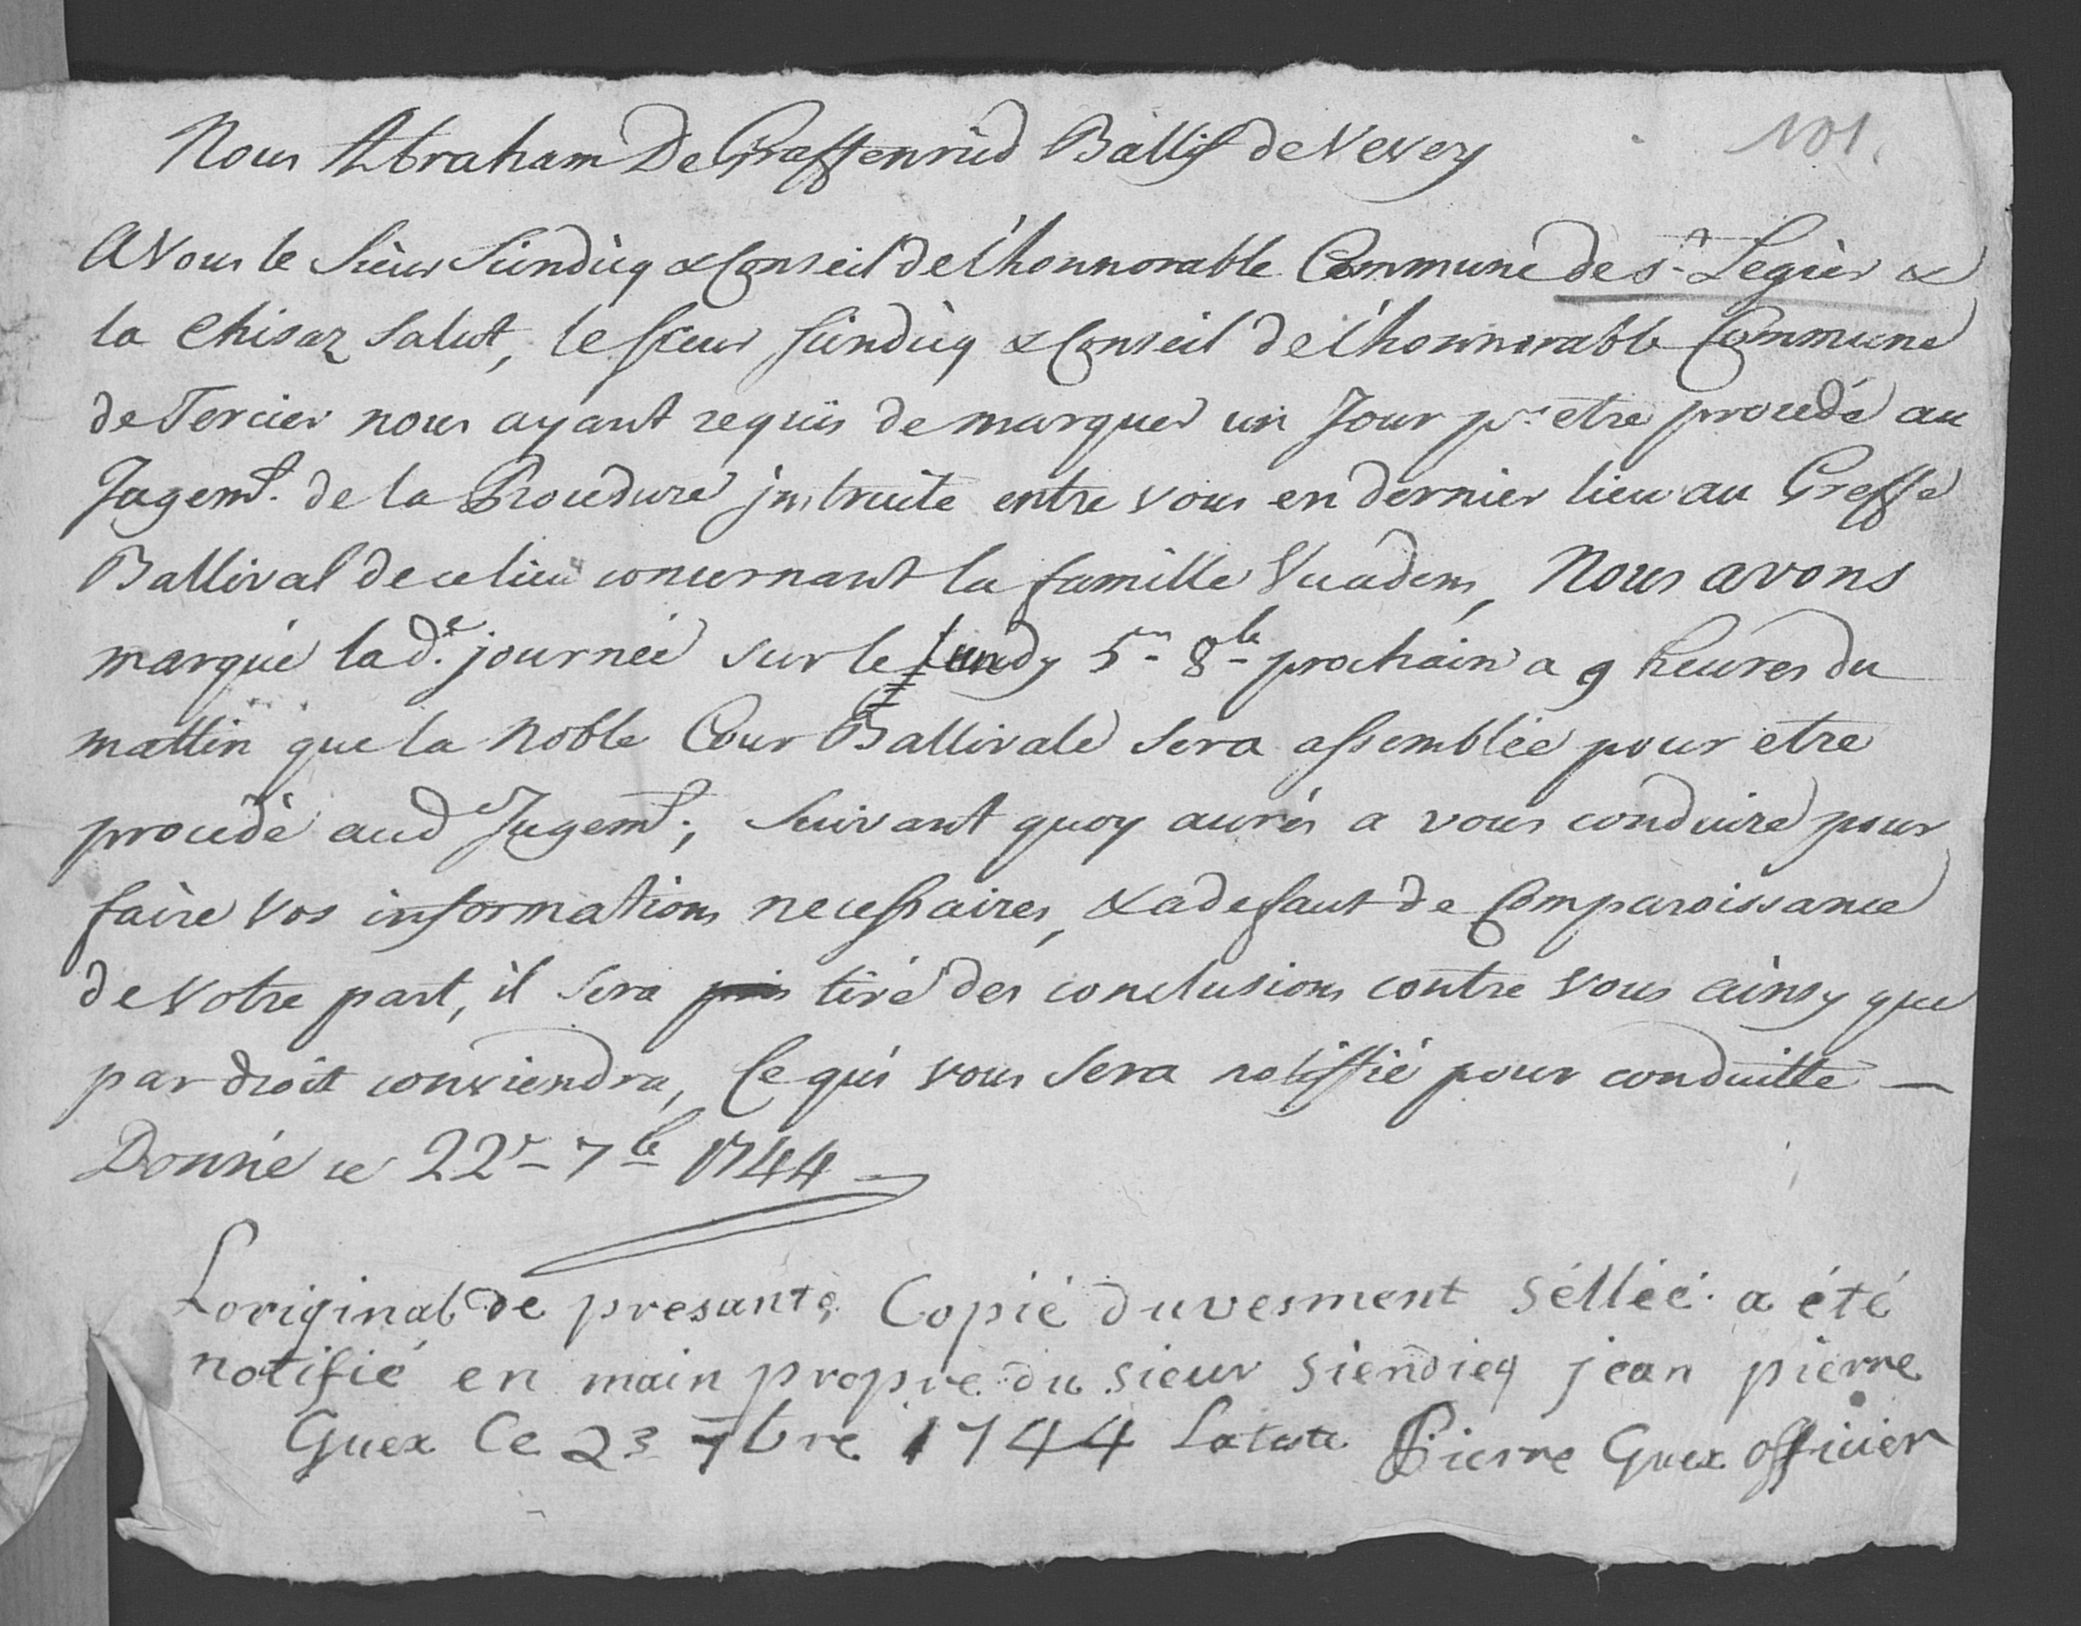 101.
Nous Abraham De Graffenried Ballif de Vevey
A Vous le Sieur Sindicq & Conseil de l'honnorable Commune de St. Legier &
la Chisaz Salut, le Sieur Sindicq & Conseil de l'honnorable Commune
de Tercier nous ayant requis de marquer un Jour pr. etre procedé au
Jugemt. de la Procedure instruite entre vous en dernier lieu au Greffe
Ballival de ce lieu concernant la famille Vuadens, Nous avons
marqué lade. journée sur le Lundy 5e 8bre prochain a 9 heures du
mattin que la Noble Cour Ballivale sera assemblée pour etre
procedé aud Jugemt; Suivant quoy aurés a vous conduire pour
faire vos informations necessaires, & a defaut de Comparoissance
de votre part, il sera tiré des conclusions contre vous ainsy que
par droit conviendra, Ce qui vous sera notiffié pour conduitte —
Donné ce 22e 7bre 1744
Loriginal de presante Copie duvesment séllée a été
notifié en main propre du sieur siendicq jean pierre
Guex Ce 23 7bre 1744 Lateste Pierre Guex officier